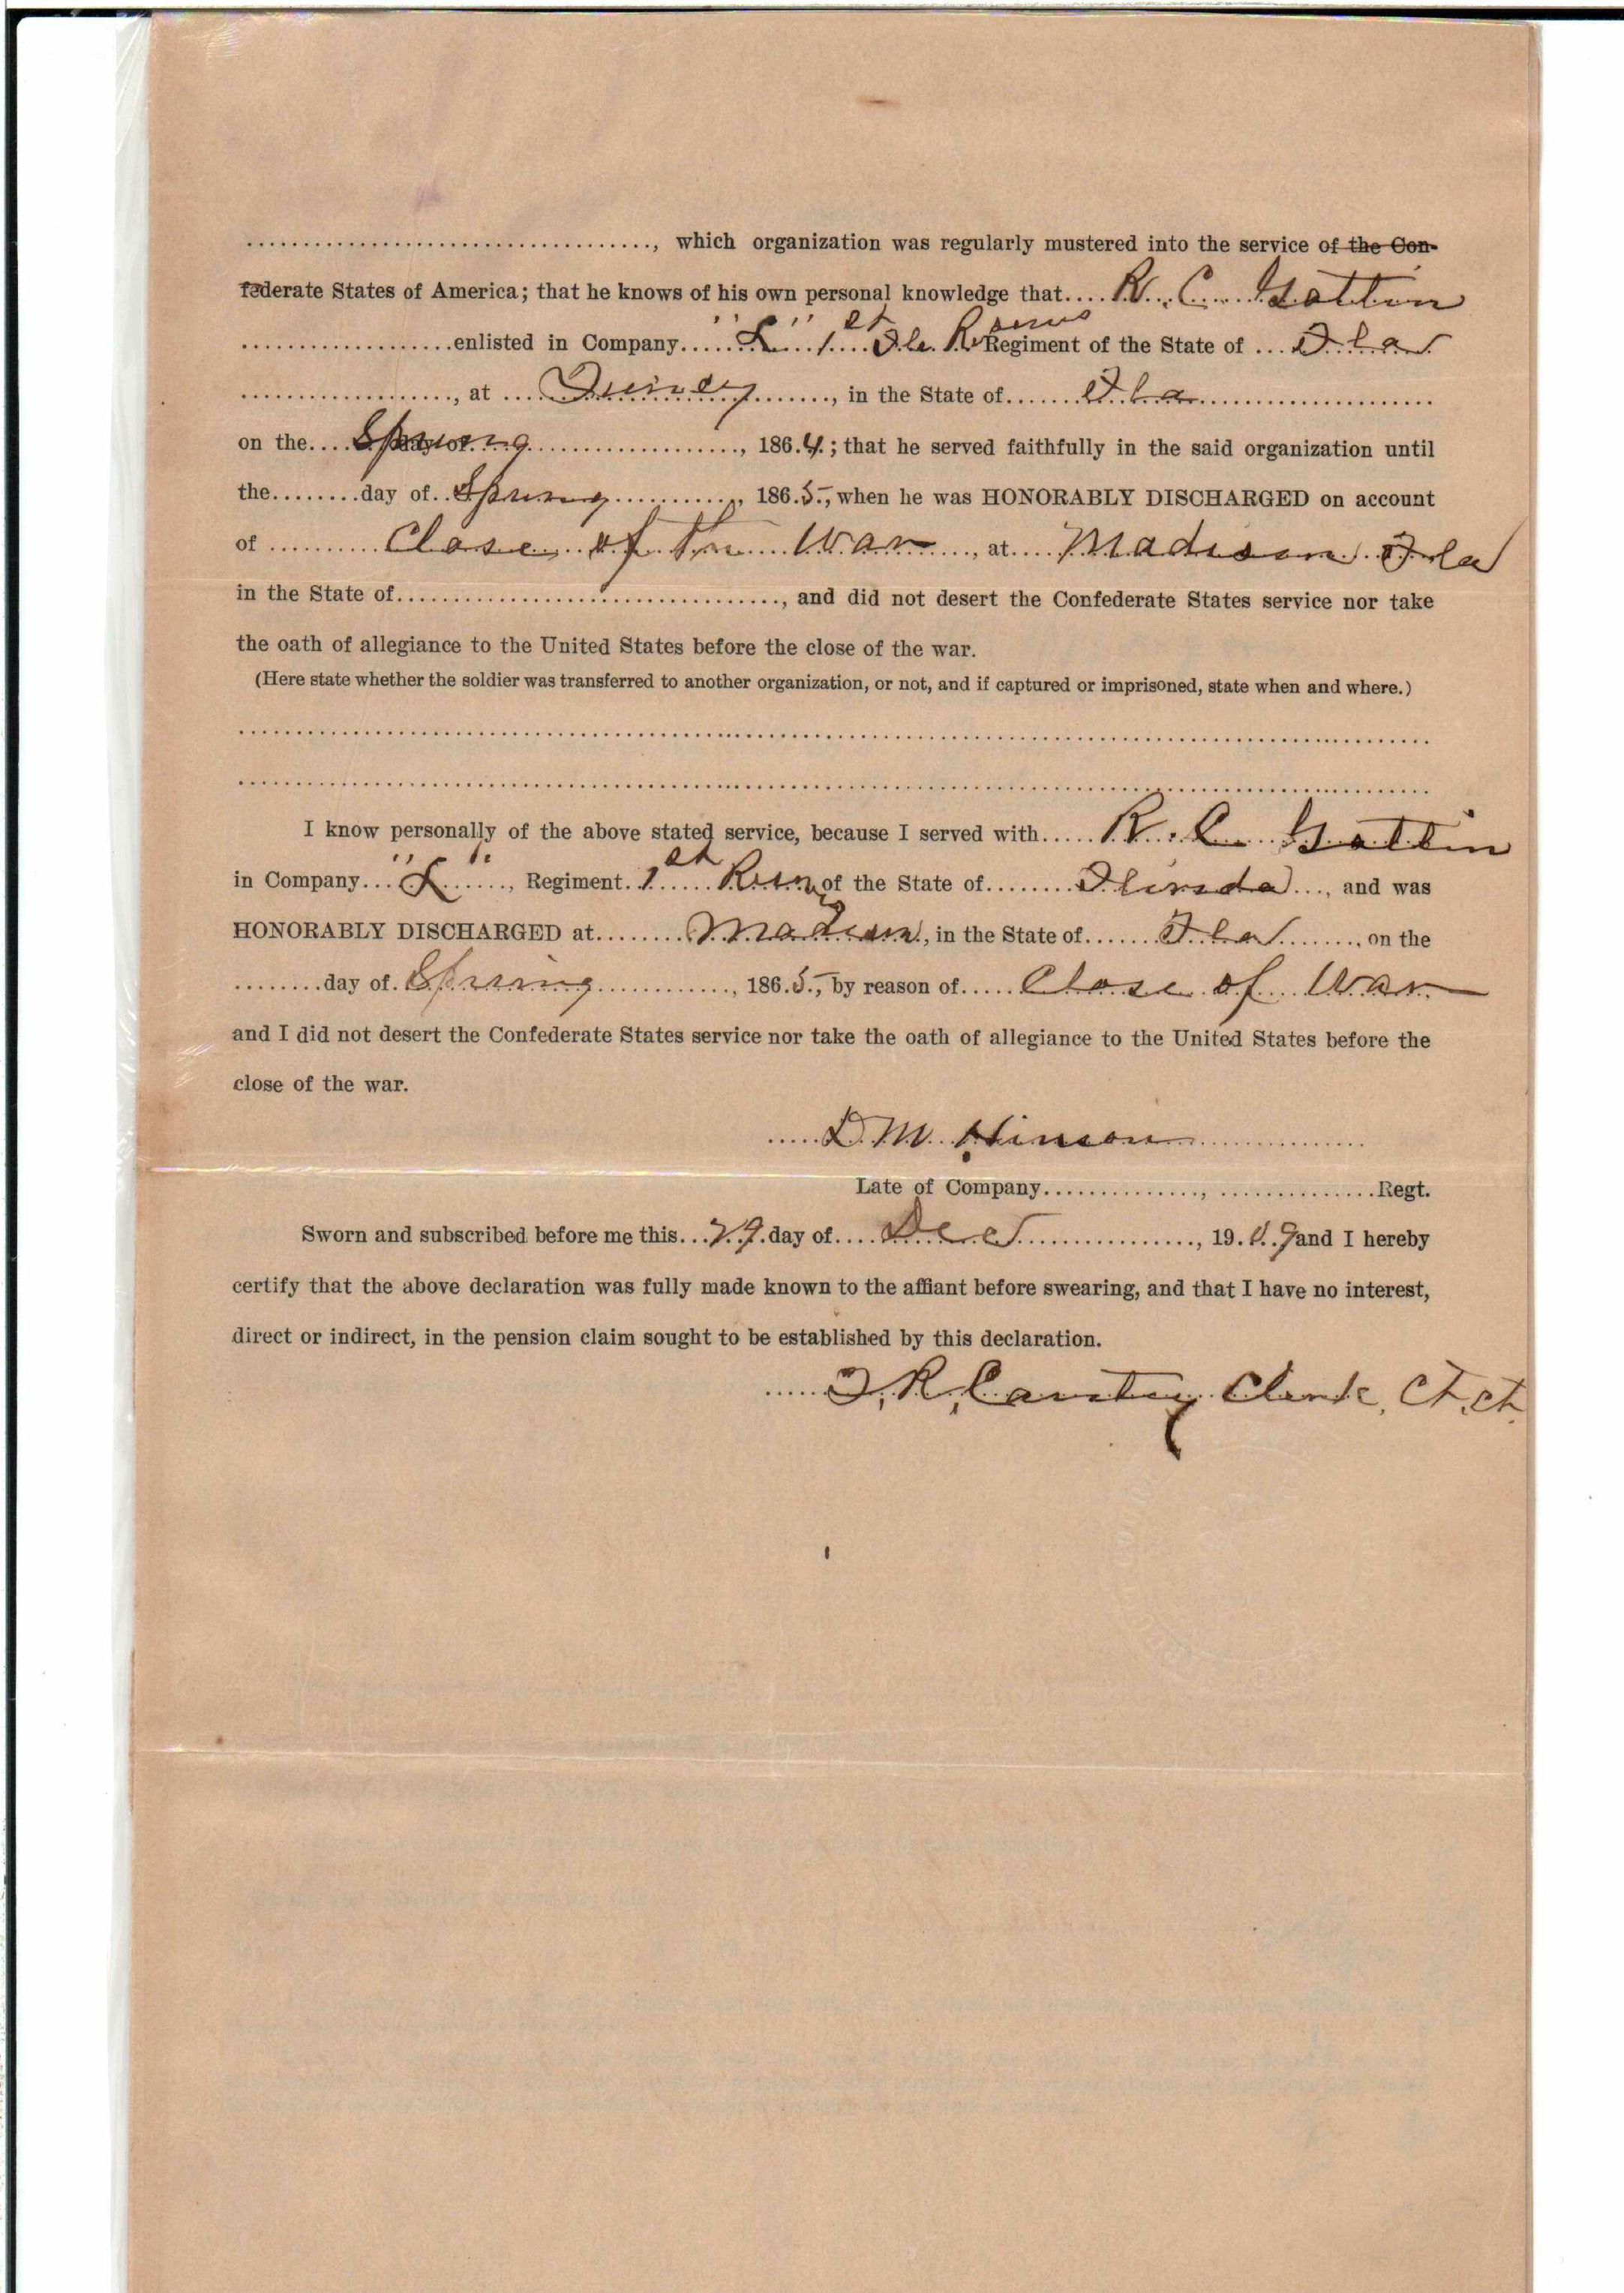 ...................................., which organization was regularly mustered into the service of the Con-
federate States of America; that he knows of his own personal knowledge that.... R. C. Gattin
...................enlisted in Company..... "L" 1st Fla. Reserves Regiment of the State of ... Fla
..................., at .... Quincy ......., in the State of....... Fla ....................
on the.... Spring day of ..................., 186.4.; that he served faithfully in the said organization until
the........day of.. Spring ..........., 186.5., when he was HONORABLY DISCHARGED on account
of .......... Close of the War ...., at.... Madison Fla
in the State of.................................., and did not desert the Confederate States service nor take
the oath of allegiance to the United States before the close of the war.
(Here state whether the soldier was transferred to another organization, or not, and if captured or imprisoned, state when and where.)
I know personally of the above stated service, because I served with..... R. C. Gattin
in Company... "L" ......, Regiment.. 1st ..... of the State of........ Florida ..., and was
HONORABLY DISCHARGED at........ Madison ., in the State of....... Fla ......., on the
........day of. Spring ............, 186.5., by reason of..... Close of War
and I did not desert the Confederate States service nor take the oath of allegiance to the United States before the
close of the war.
..... D. M. Hinson ...............
Late of Company.............., ..............Regt.
Sworn and subscribed before me this... 29. day of.... Dec ................, 19. 09 and I hereby
certify that the above declaration was fully made known to the affiant before swearing, and that I have no interest,
direct or indirect, in the pension claim sought to be established by this declaration.
..... Clerk, Ct. Ct.